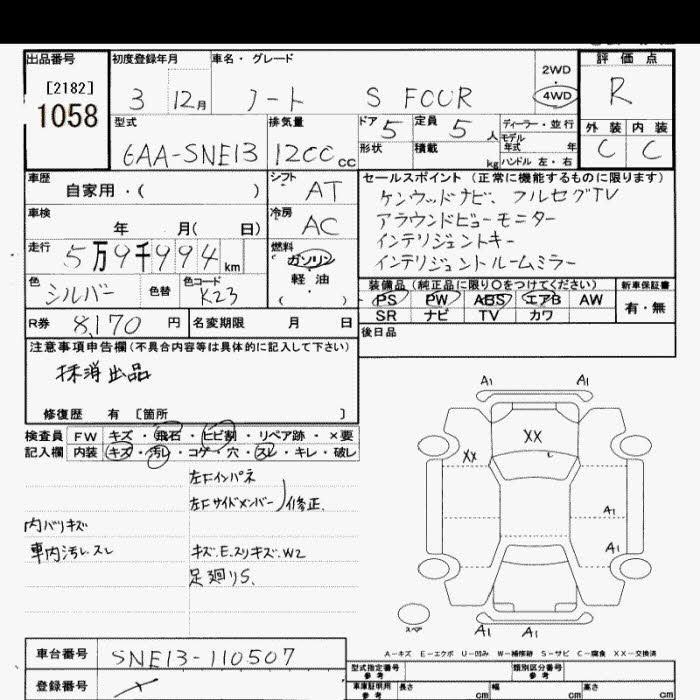 出品番号 初度登録年月 車名・グレード 2WD 評価点
[2182] 3 12月 ノート S FOUR 4WD R
1058
型式 排気量 ドア 5 定員 5人 ディーラー・並行 外装 内装
モデル年式 年
6AA-SNE13 1200cc 形状 積載 kg ハンドル 左・右 C C
車歴 シフト AT セールスポイント(正常に機能するものに限ります)
自家用・( ) ケンウッドナビ、フルセグTV
車検 冷房 AC アラウンドビューモニター
年 月( 日)
走行 5万9千994km 燃料 ガソリン インテリジェントキー
軽油 インテリジェントルームミラー
( )
色 シルバー 色替 色コード K23 装備品(純正品に限り○をつけてください) 新車保証書
PS PW ABS エアB AW 有・無
R券 8,170円 名変期限 月 日 SR ナビ TV カワ
注意事項申告欄(不具合内容等は具体的に記入して下さい) 後日品
抹消出品
修復歴 有 [箇所 ]
検査員 FW キズ・飛石・ヒビ割・リペア跡・×要
記入欄 内装 キズ・汚レ・コゲ・穴・スレ・キレ・破レ
左Fインパネ
左Fサイドメンバー)修正.
内バリキズ
車内汚レ.スレ キズ.E.スリキズ.W2
足廻りS.
A1 A1
XX
XX
A1
A1
スペア A1 A1
A-キズ E-エクボ U-凹み W-補修跡 S-サビ C-腐食 XX-交換済
車台番号 SNE13-110507
型式指定番号 参考 類別区分番号 参考
登録番号
車庫証明用 参考 長さ cm 幅 cm 高さ cm